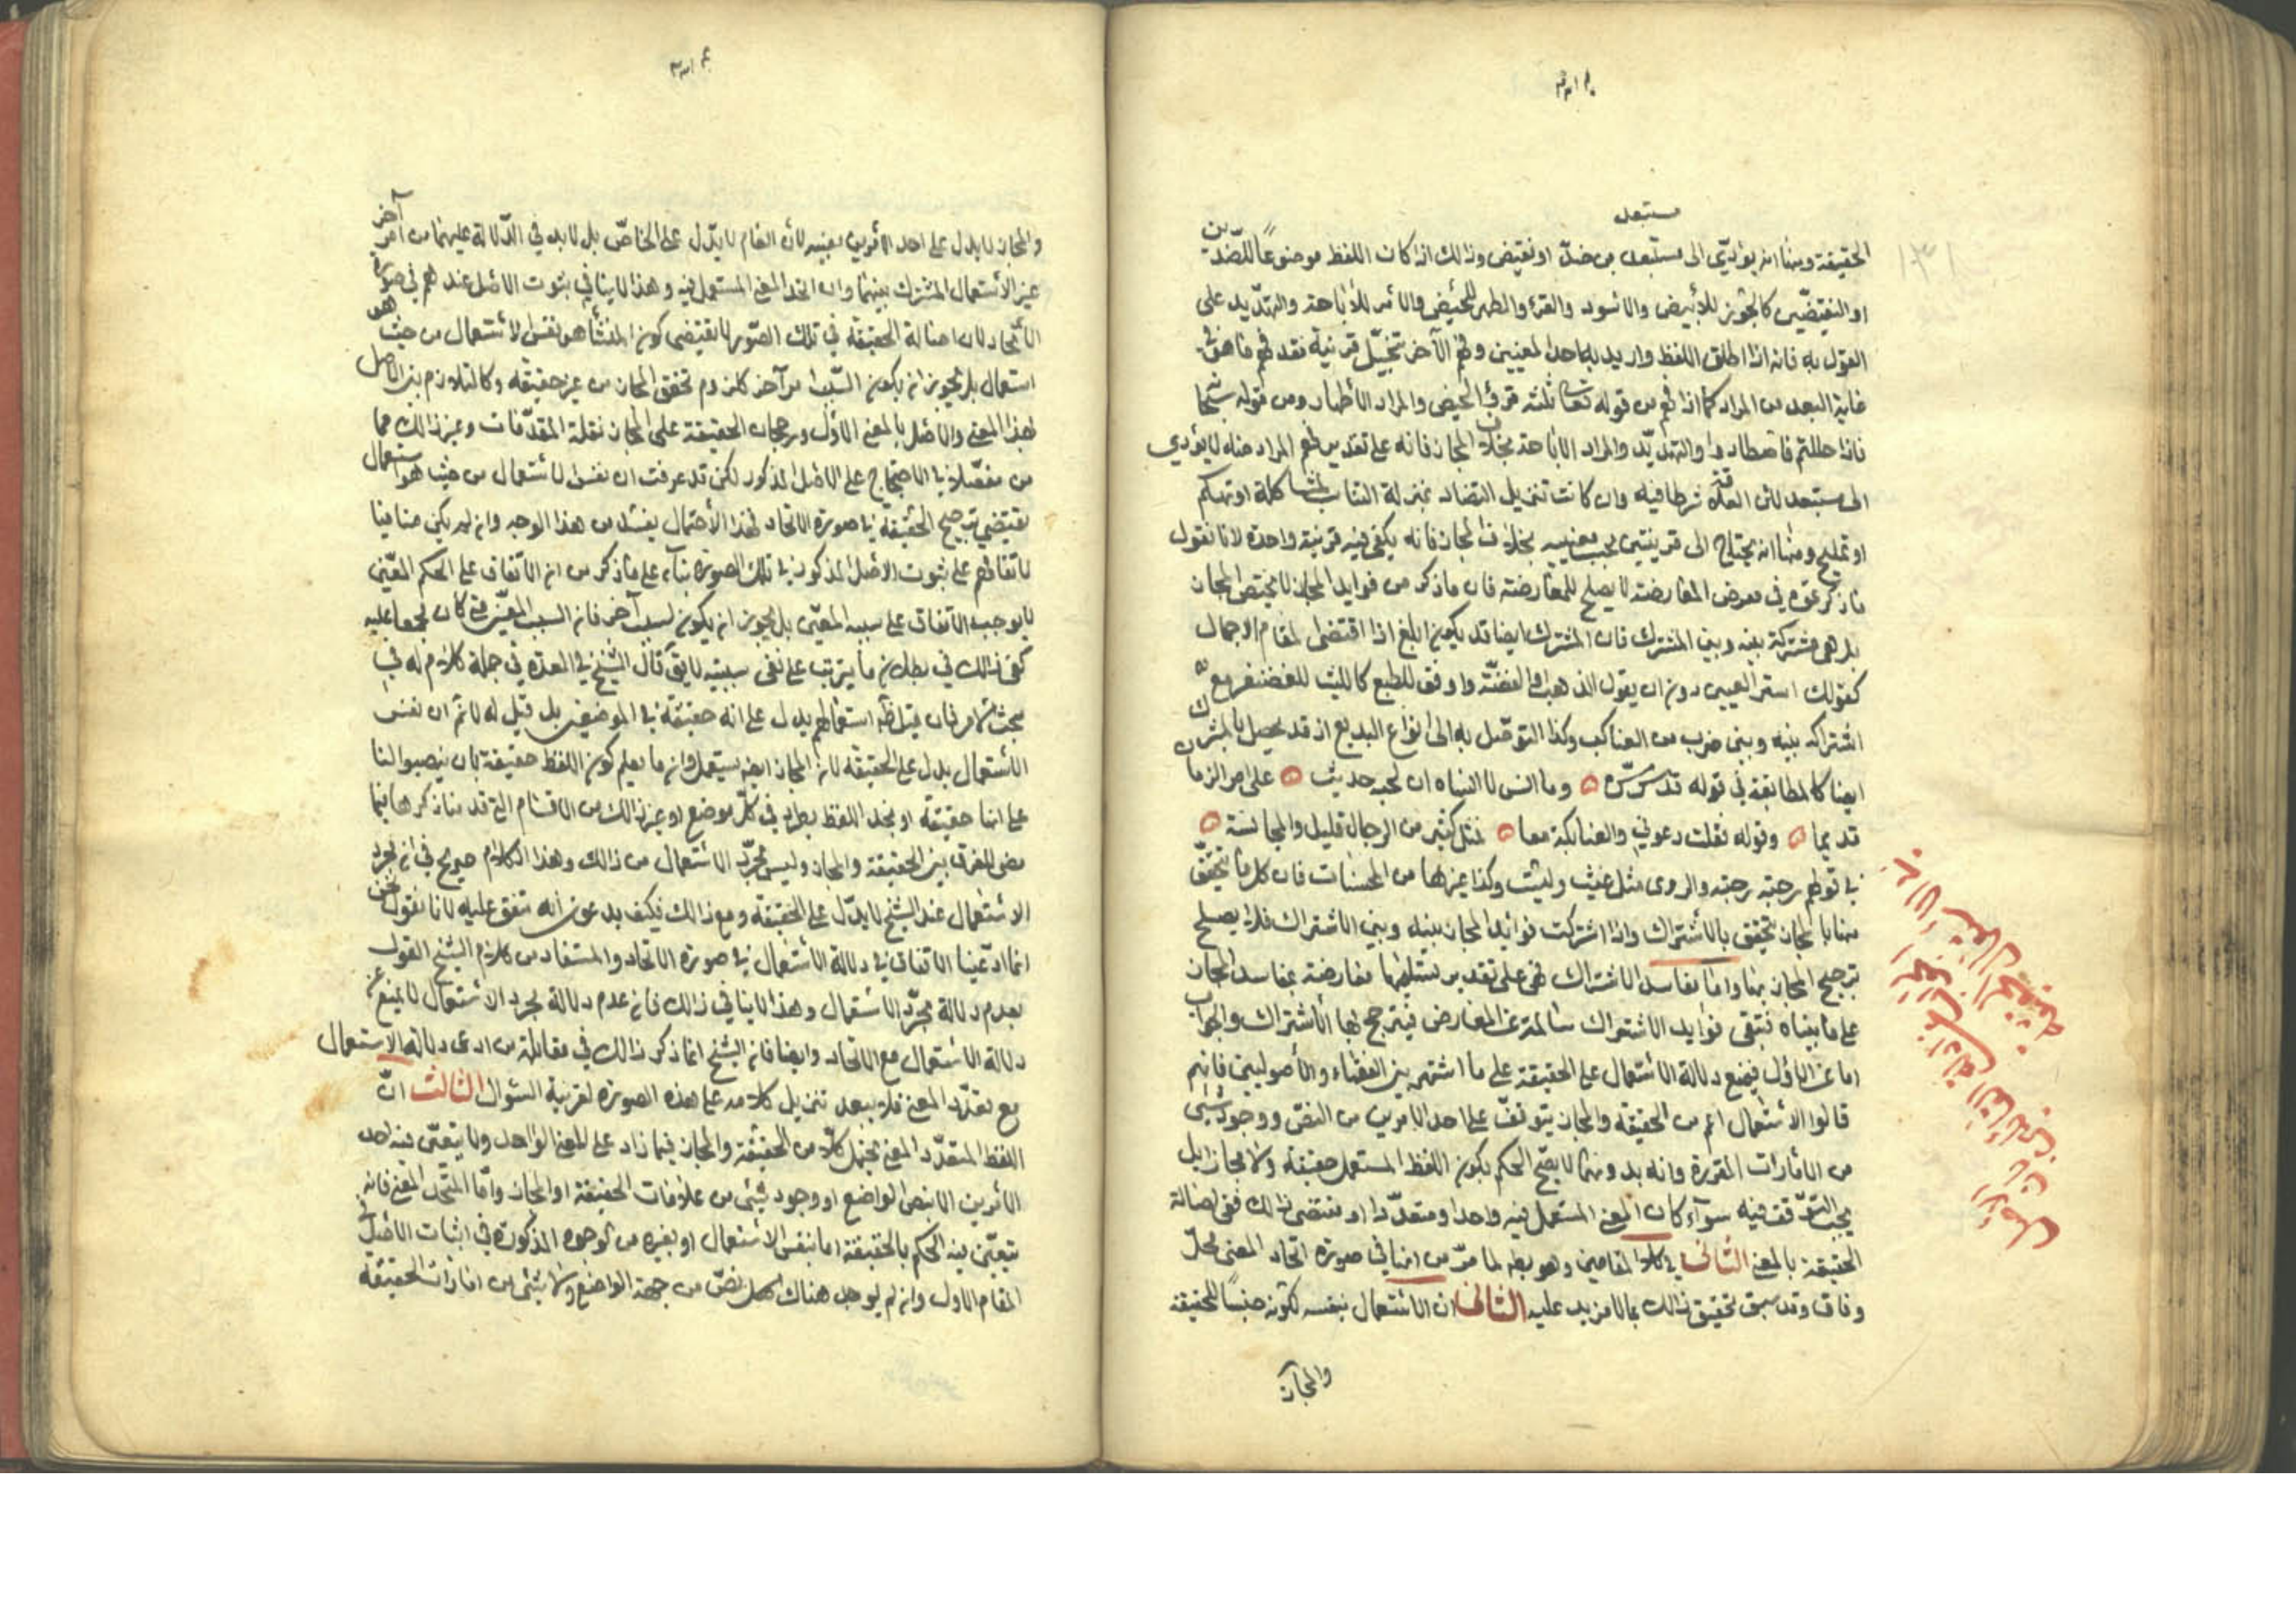 مستبعد
الحقيقة ومنها انه يؤدّي الى مستبعد من ضدّ او نقيض وذلك اذا كان اللفظ موضوعاً للضدّين
او النقيضين كالجون للأبيض والاسود والقرء والطهر للحيض والامر للاباحة والتهديد على
القول به فانه اذا اطلق اللفظ واريد به احد المعنيين وفهم الآخر بتخيّل قرينة فقد فهم ما هو في
غاية البعد من المراد كما اذا فهم من قوله تعالى ثلثة قروء الحيض والمراد الأطهار ومن قوله
فاذا حللتم فاصطادوا والتهديد والمراد الاباحة بخلاف المجاز فانه على تقدير فهم المراد منه لا يؤدي
الى مستبعد لأن العلاقة شرط فيه وان كانت تنزيل التضاد بمنزلة التناسب لمشاكلة او تهكم
او تمليح ومنها انه يحتاج الى قرينتين بحسب معنييه بخلاف المجاز فانه يكفي فيه قرينة واحدة لانا نقول
ما ذكرتموه في معرض المعارضة لا يصلح للمعارضة فان ما ذكر من فوايد المجاز لا يختص المجاز
بل هي مشتركة بينه وبين المشترك فان المشترك ايضا قد يكون ابلغ اذا اقتضى المقام الاجمال
كقولك استر العين دون ان يقول الذهب او الفضّة واوفق للطبع كالليث للغضنفر مع
اشتراكه بينه وبين ضرب من العناكب وكذا التوصّل به الى انواع البديع اذ قد يحصل بالمشترك
ايضا كالمطابقة في قوله قدس سرّه وما انس لا انساه ان لحبه حديث على مر الزمان
قديما وقوله نقلت دعوني والعنابكة معا فمثل كثير من الرجال قليل والمجانسة
في قولهم رحبة رحبة والروى مثل غيث وليث وكذا غيرها من المحسنات فان كل ما يتحقق
منها بالمجاز يتحقق بالاشتراك واذا اشتركت فوايد المجاز بينه وبين الاشتراك فلا يصلح
ترجيح المجاز بها واما مفاسد الاشتراك فهي على تقدير تسليمها معارضة بمفاسد المجاز
على ما بيناه فتبقى فوايد الاشتراك سالمة عن المعارض فيترجح بها الاشتراك والجواب
اما عن الاول فبمنع دلالة الاستعمال على الحقيقة على ما اشتهر بين الفقهاء والأصوليين فانهم
قالوا الاستعمال اعم من الحقيقة والمجاز يتوقف على احد الامرين من النصّ ووجود شئ
من الامارات المقررة وانه بدونهما لا يصحّ الحكم بكون اللفظ المستعمل حقيقة ولا مجاز بل
يجب التوقف فيه سوآء كان المعنى المستعمل فيه واحدا ومتعددا او مقتضى ذلك نفي اصالة
الحقيقة بالمعنى الثاني في كلا المقامين وهو بط لما مرّ من انها في صورة اتحاد المعنى محلّ
وفاق وقد سبق تحقيق ذلك بما لا مزيد عليه الثاني ان الاستعمال بنفسه لكونه جنساً للحقيقة
والمجاز
والمجاز لا يدل على احد الامرين بعينه لان العام لا يدّل على الخاصّ بل لا بد في الدّلالة عليهما من امر آخر
غير الاستعمال المشترك بينهما وان اتحد المعنى المستعمل فيه وهذا لا ينافي ثبوت الاصل عندهم في صورة
الاتّحاد لان اصالة الحقيقة في تلك الصّورة لا يقتضى كون المنشأ هو نفس الاستعمال من حيث هو
استعمال بل يجوز ان يكون السّبب امر آخر كلزوم تحقق المجاز من غير حقيقة وكالتلازم بين الاصل
بهذا المعنى والاصل بالمعنى الاوّل ورجحان الحقيقة على المجاز نقلة المقدّمات وغير ذلك مما
من مفصّلا في الاحتجاج على الاصل المذكور لكن قد عرفت ان نفس الاستعمال من حيث هو استعمال
يقتضي ترجيح الحقيقة في صورة الاتحاد فهذا الاحتمال يفسد من هذا الوجه وان لم يكن منافيا
لاتفاقهم على ثبوت الاصل المذكور في تلك الصورة بناء على ما ذكر من ان الاتفاق على الحكم المعيّن
لا يوجب الاتفاق على سببه المعيّن بل يجوز ان يكون لسبب آخر فان السبب المعيّن متى كان مجمعا عليه
كفى ذلك في بطلان ما يترتب على نفى سببيته لا يق قال الشيخ في العدّة في جملة كلام له في
مبحث الامر فان قيل ظ استعمالهم يدل على انه حقيقة في الموضعين بل قيل له لا ثم ان نفس
الاستعمال يدل على الحقيقة لان المجاز ايضه يستعمل وان ما يعلم كون اللفظ حقيقة بان ينصبوا لنا
على انها حقيقة او نجد اللفظ يطرد في كلّ موضع او غير ذلك من الاقسام التي قدمنا ذكرها فيما
مضى للفرق بين الحقيقة والمجاز وليس مجرّد الاستعمال من ذلك وهذا الكلام صريح في ان مجرد
الاستعمال عند الشيخ لا يدّل على الحقيقة ومع ذلك فكيف يدعون انه متفق عليه لانا نقول نحن
انما ادّعينا الاتفاق في دلالة الاستعمال في صورة الاتحاد والمستفاد من كلام الشيخ القول
بعدم دلالة مجرّد الاستعمال وهذا لا ينافي ذلك فان عدم دلالة مجرد الاستعمال لا يمنع عن
دلالة الاستعمال مع الاتحاد وايضا فان الشيخ انما ذكر ذلك في مقابلة من ادعى دلالة الاستعمال
مع تعدّد المعنى فلا يبعد تنزيل كلامه على هذه الصورة لقرينة السّوال الثالث انّ
اللفظ المتعدّد المعنى يحتمل كلّا من الحقيقة والمجاز فيما زاد على المعنى الواحد ولا يتعيّن فيه احد
الامرين الا بنص الواضع او وجود شئ من علامات الحقيقة او المجاز وامّا المتحد المعنى فانه
يتعيّن فيه الحكم بالحقيقة اما بنفس الاستعمال او بغيره من الوجوه المذكورة في اثبات الاصل في
المقام الاول وان لم يوجد هناك نصّ من جهة الواضع ولا شئ من امارات الحقيقة